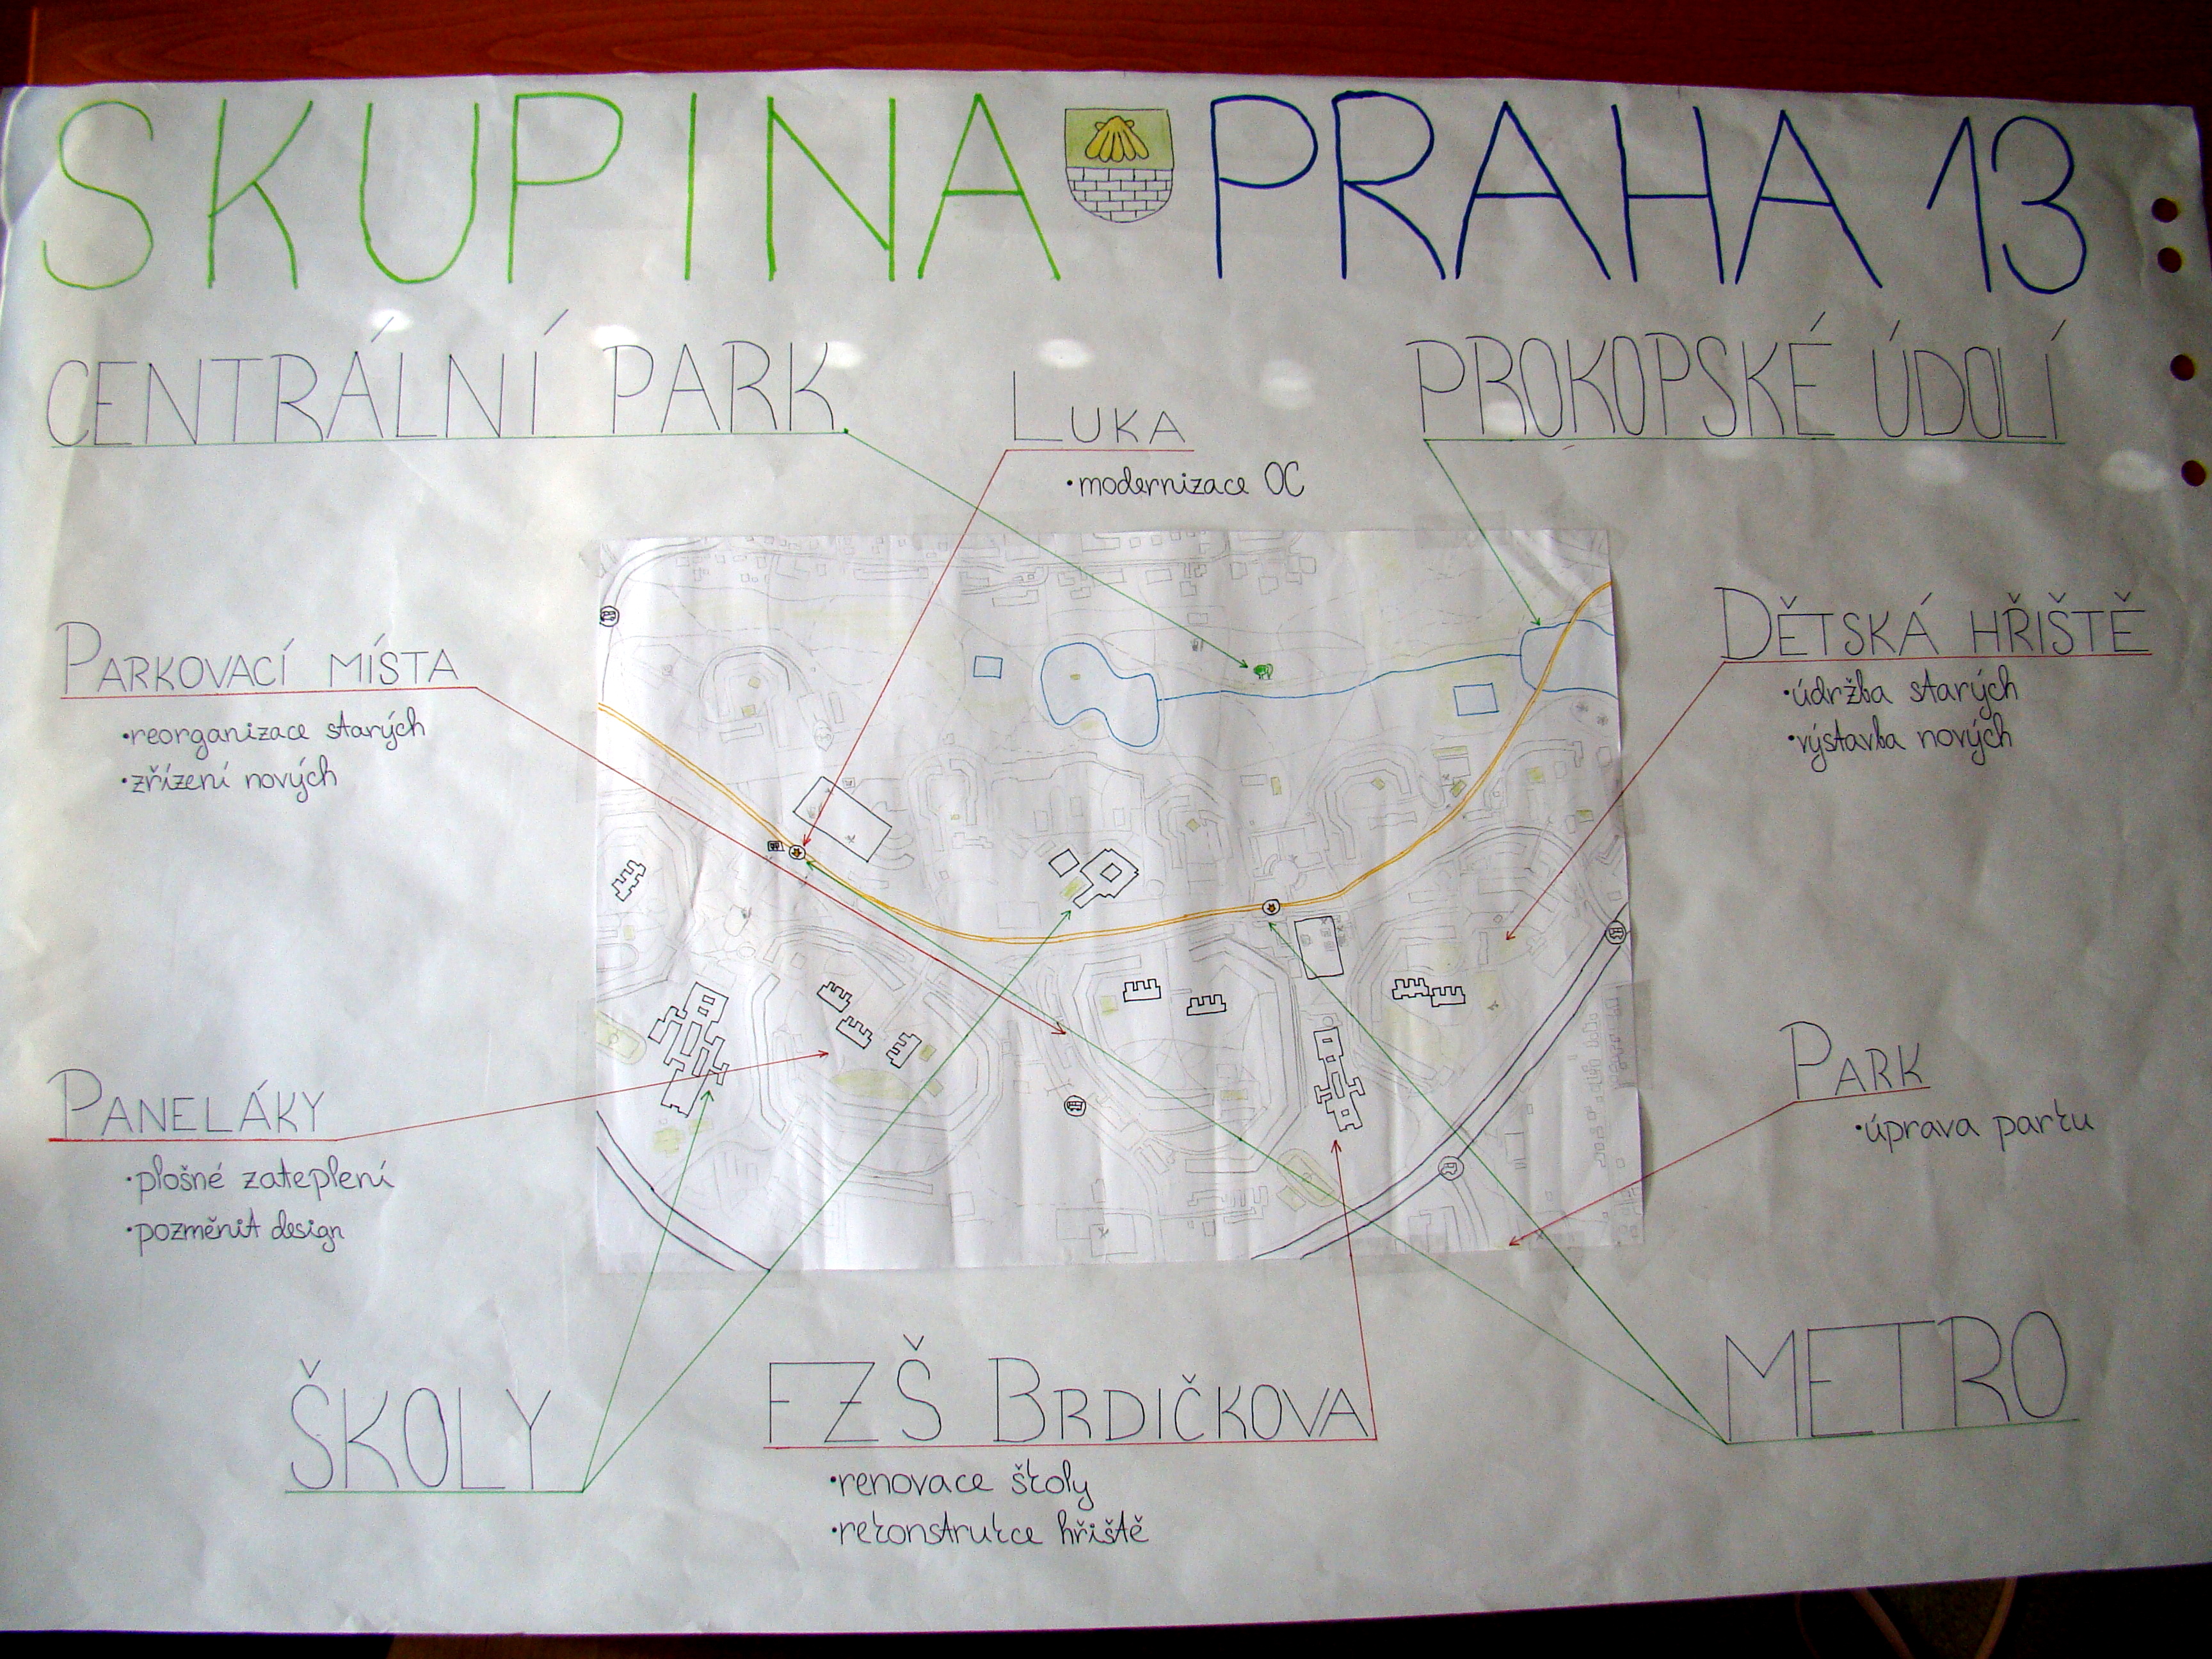 SKUPINA PRAHA 13
CENTRÁLNÍ PARK
LUKA
•modernizace OC
PROKOPSKÉ ÚDOLÍ
PARKOVACÍ MÍSTA
•reorganizace starých
•zřízení nových
DĚTSKÁ HŘIŠTĚ
•údržba starých
•výstavba nových
PANELÁKY
•plošné zateplení
•pozměnit design
PARK
•úprava parku
ŠKOLY
FZŠ BRDIČKOVA
•renovace školy
•rekonstrukce hřiště
METRO